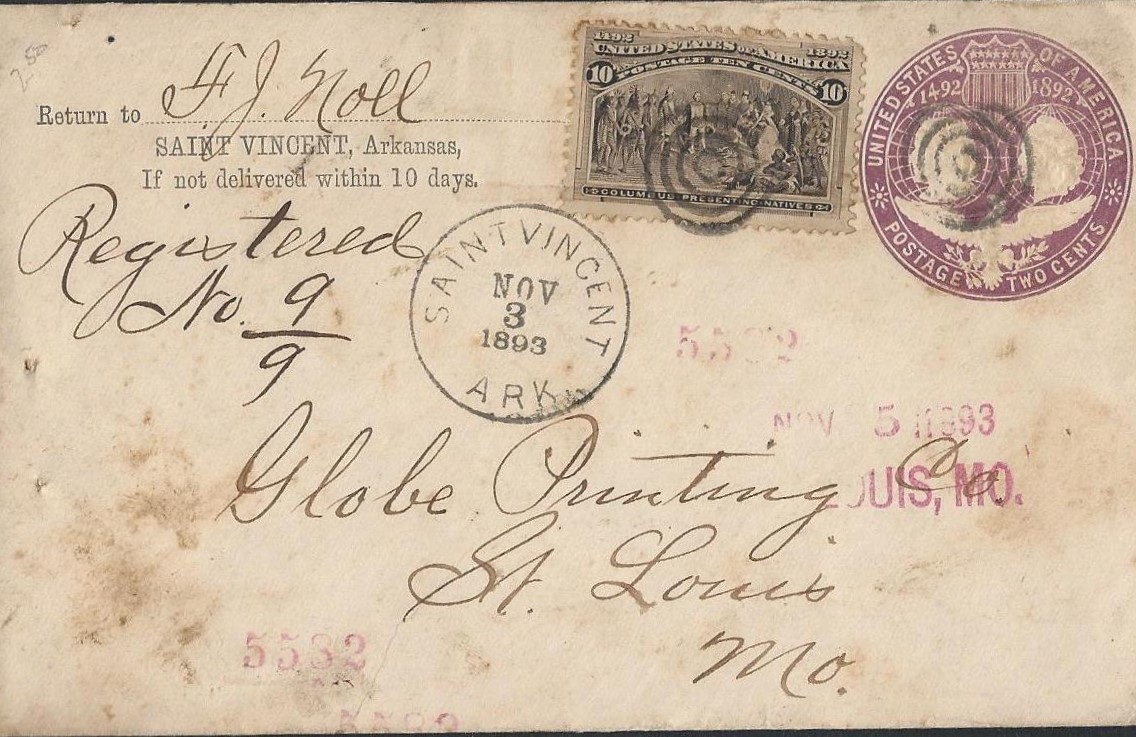 2.50
Return to F. J. Noll
SAINT VINCENT, Arkansas,
If not delivered within 10 days.
Registered
No. 9
9
1492 1892
UNITED STATES OF AMERICA
POSTAGE TEN CENTS
10 10
COLUMBUS PRESENTING NATIVES
UNITED STATES OF AMERICA
1492 1892
POSTAGE TWO CENTS
SAINT VINCENT
NOV
3
1893
ARK.
5582
NOV 5 1893
LOUIS, MO.
Globe Printing Co.
St. Louis
Mo.
5582
5582